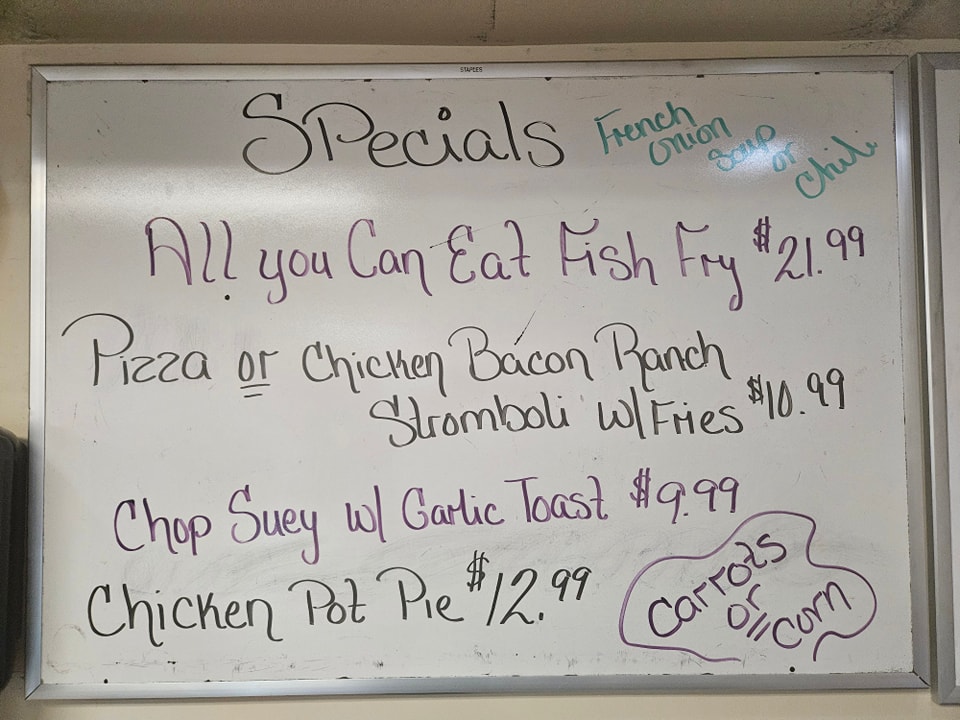 STAPLES
Specials
French
Onion
Soup
or
Chili
All you Can Eat Fish Fry $21.99
Pizza or Chicken Bacon Ranch
Stromboli w/Fries $10.99
Chop Suey w/ Garlic Toast $9.99
Chicken Pot Pie $12.99
Carrots
or
corn